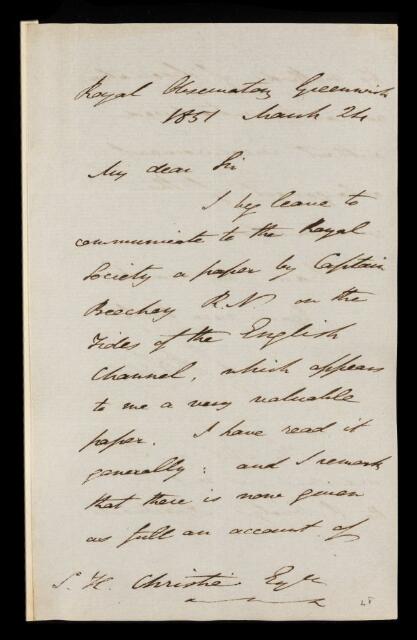 Royal Observatory Greenwich
1851 March 24
My dear Sir
I beg leave to
communicate to the Royal
Society a paper by Captain
Beechey R.N. on the
Tides of the English
Channel, which appears
to me a very valuable
paper. I have read it
generally: and I remark
that there is now given
as full an account of
S. H. Christie Esqre